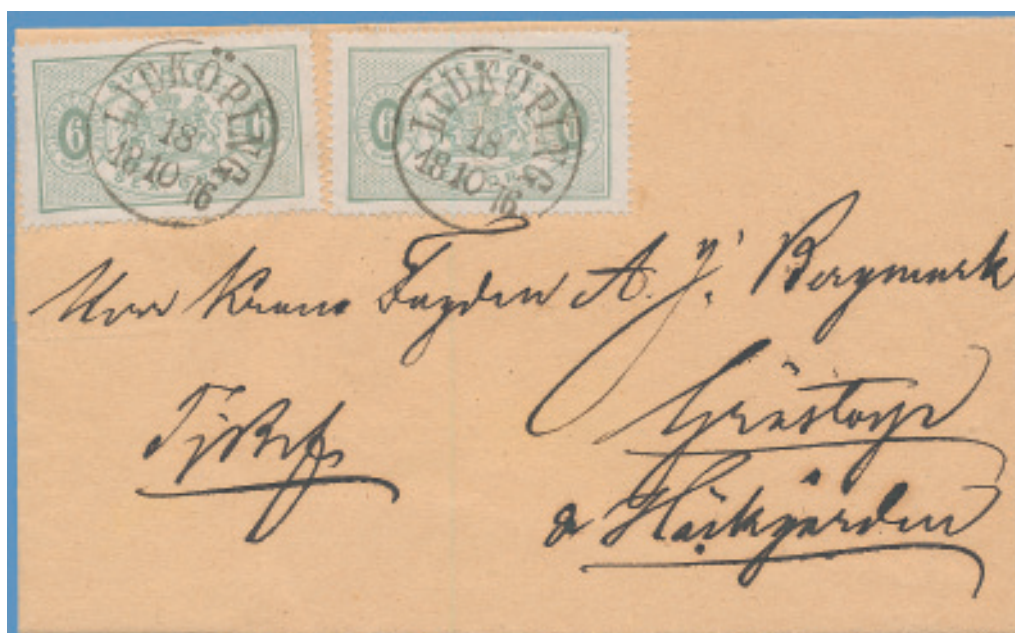 6 LIDKÖPING 6
18
18 10 76
6 LIDKÖPING
18
18 10 76
Herr Krono Fogden A. J. Bergmark
Grästorp
TjBref
Häikgården